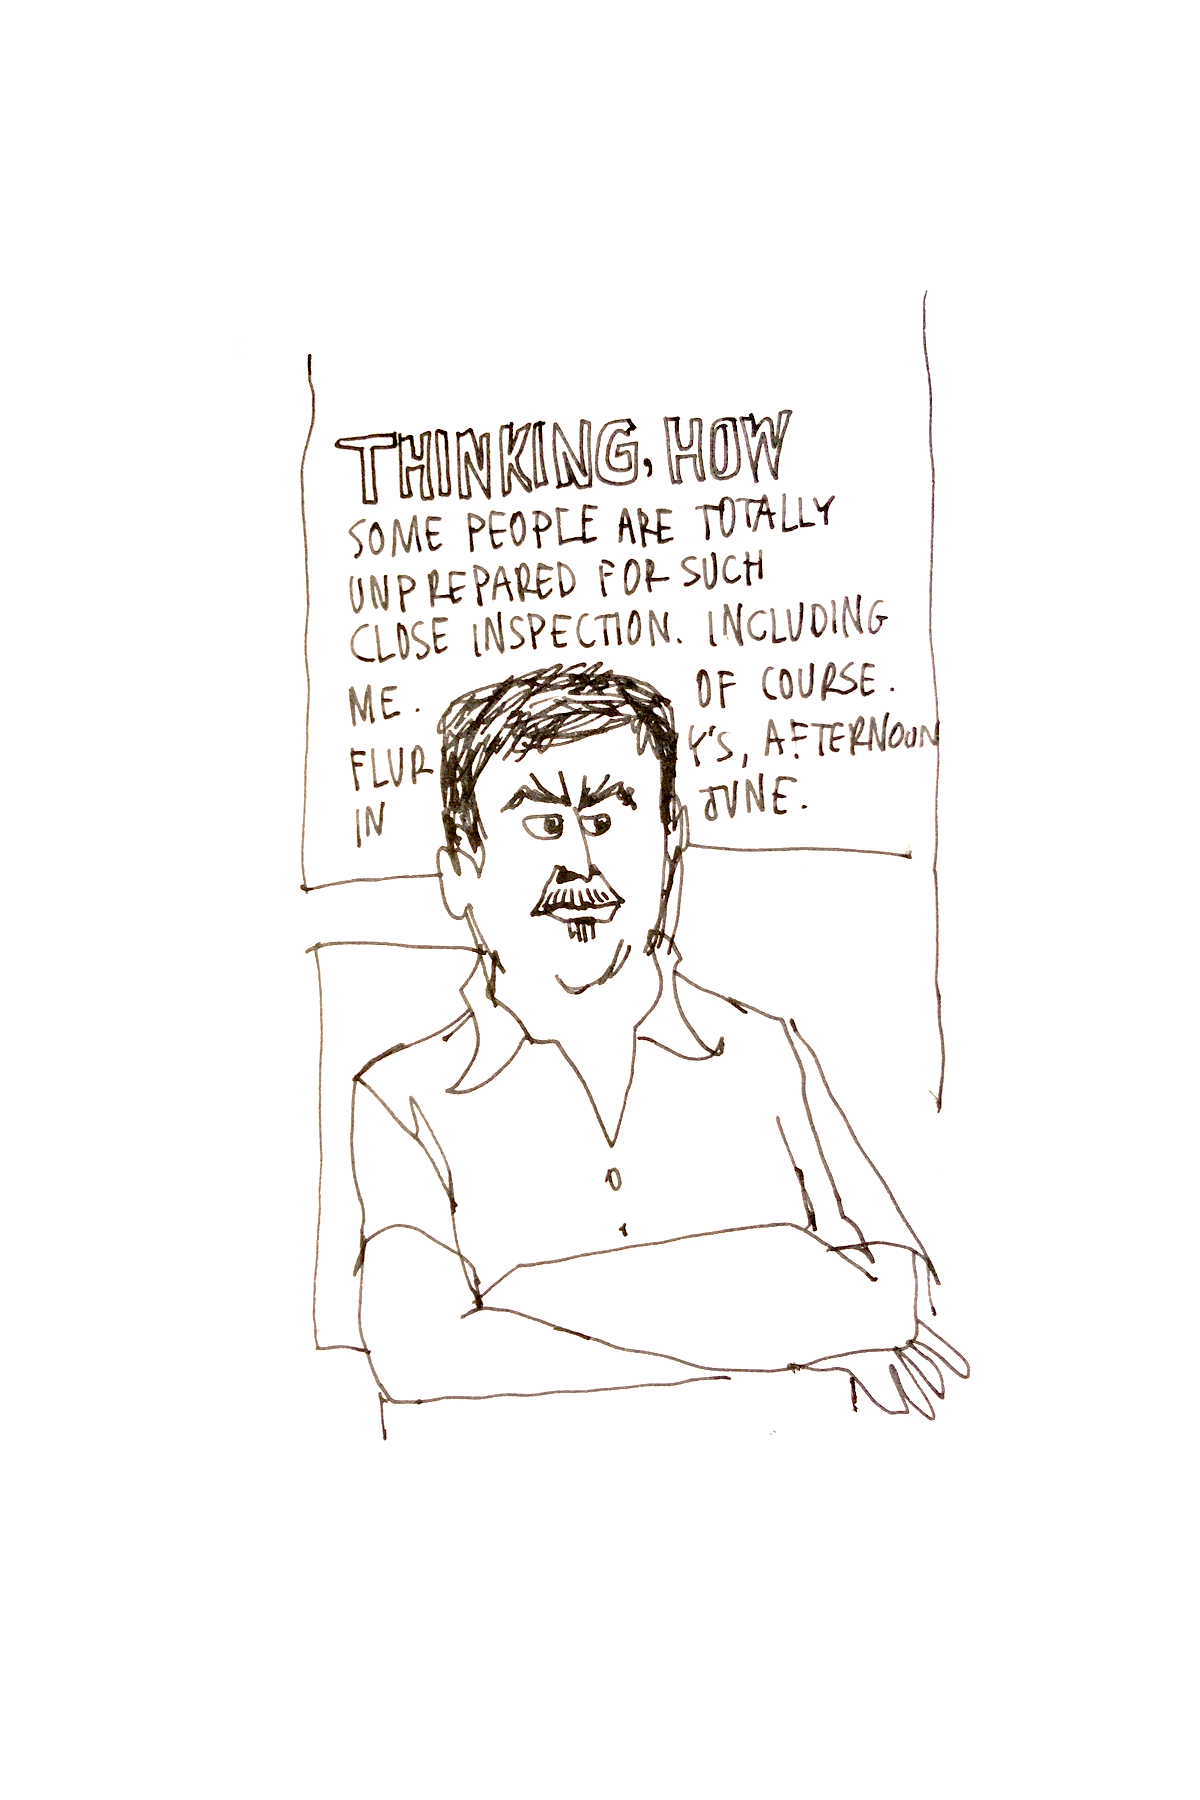 THINKING, HOW
SOME PEOPLE ARE TOTALLY
UNPREPARED FOR SUCH
CLOSE INSPECTION. INCLUDING
ME. OF COURSE.
FLUR Y'S, AFTERNOON
IN JUNE.